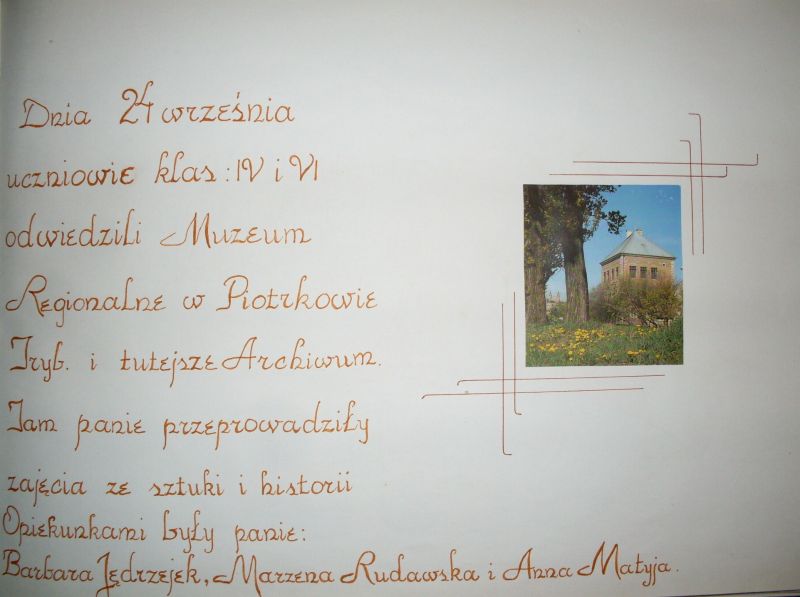 Dnia 24 września
uczniowie klas: IV i VI
odwiedzili Muzeum
Regionalne w Piotrkowie
Tryb. i tutejsze Archiwum.
Tam panie przeprowadziły
zajęcia ze sztuki i historii
Opiekunkami były panie:
Barbara Jędrzejek, Marzena Rudawska i Anna Matyja.